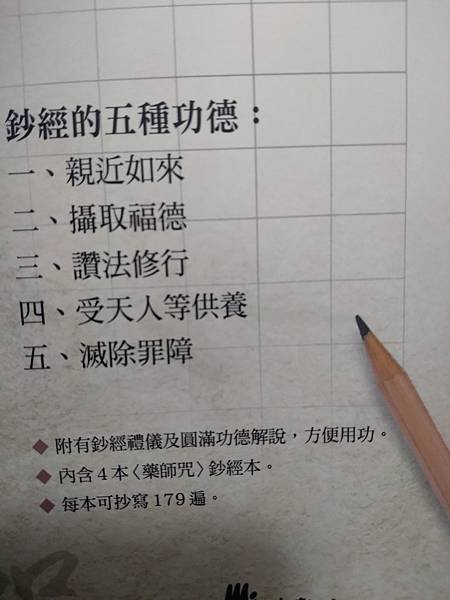 鈔經的五種功德：
一、親近如來
二、攝取福德
三、讚法修行
四、受天人等供養
五、滅除罪障
◆附有鈔經禮儀及圓滿功德解說，方便用功。
◆內含4本〈藥師咒〉鈔經本。
◆每本可抄寫179遍。